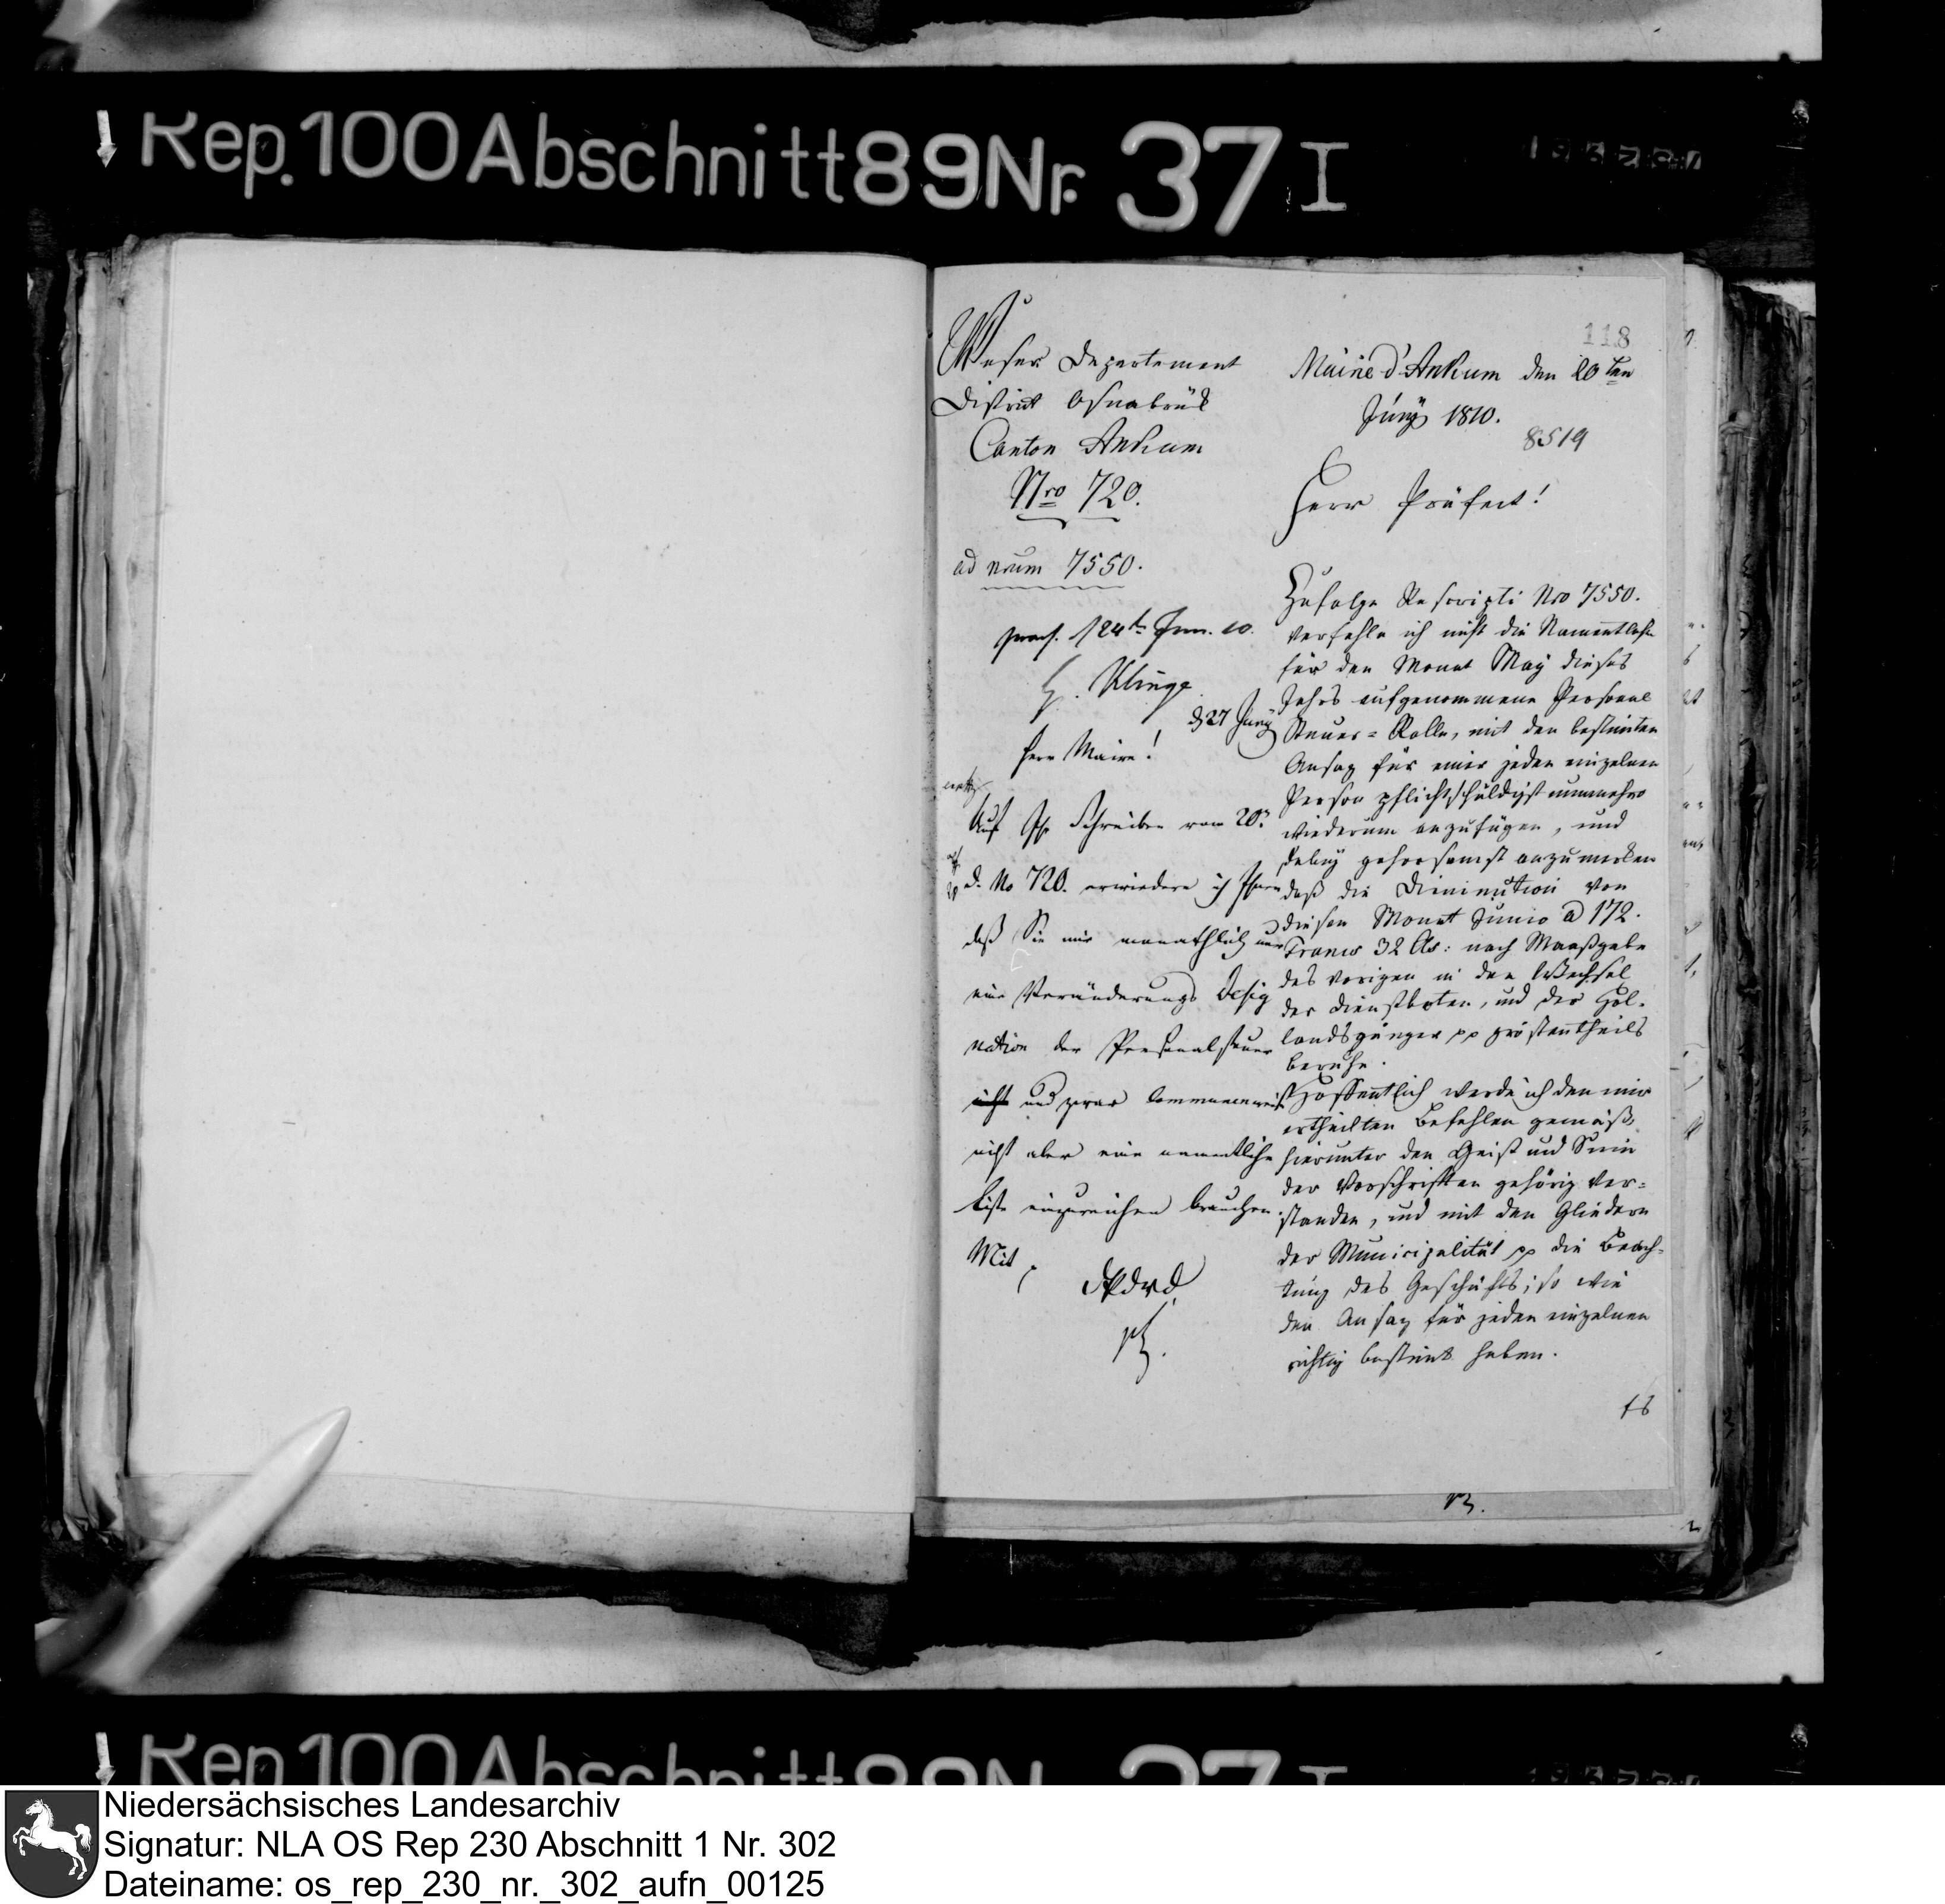 Rep. 100 Abschnitt 89 Nr. 37 I
118
Weser Departement
District Osnabrück
Canton Ankum
Nro 720.
ad num 7550.
praes. 24t Jun. 10.
H. Klinge
d 27 Juny
Herr Maire!
Auf Ihr Schreiben vom 20n
d. No 720. erwiedere ich Ihnen
daß Sie mir monathlich nur
eine Veränderungs Desig
nation der Personalsteuer
nicht und zwar communenweise
nicht aber eine namentliche
Liste einzureichen brauchen.
Mit
Mairie d'Ankum den 20ten
Juny 1810.
8519
Herr Präfect!
Zufolge Rescripti Nro 7550.
verfehle ich nicht die Namentliche
für den Monat May dieses
Jahrs aufgenommene Personal
Steuer=Rolle, mit den bestimten
Ansaz für einer jeden einzelnen
Person pflichtschuldigst nunmehro
wiederum anzufügen, und
dabey gehorsamst anzumerken
daß die Diminution von
diesen Monat Junio a 172.
Francs 32 Cs: nach Maaßgabe
des vorigen in den Wechsel
der Dienstboten, und der Hol-
landsgänger pp gröstentheils
beruhe.
Hoffentlich werde ich den mir
ertheilten Befehlen gemäß,
hierunter den Geist und Sinn
der Vorschriften gehörig ver=
standen, und mit den Gliedern
der Municipalität pp die Beach-
tung des Geschäfts; so wie
den Ansaz für jeden einzelnen
richtig bestimt haben.
Rep. 100 Abschnitt 89 Nr. 37 I
Niedersächsisches Landesarchiv
Signatur: NLA OS Rep 230 Abschnitt 1 Nr. 302
Dateiname: os_rep_230_nr._302_aufn_00125